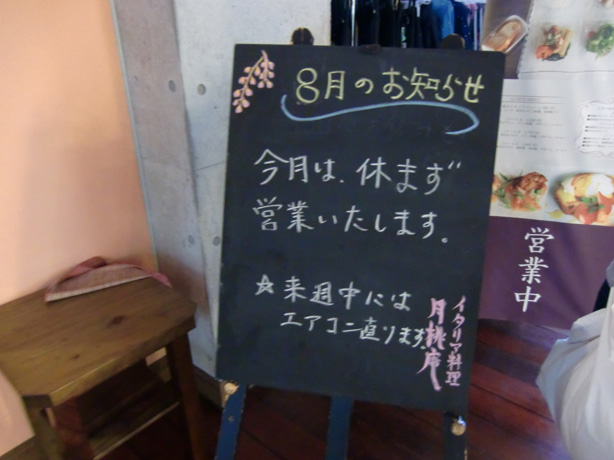 8月のお知らせ
今月は、休まず
営業いたします。
☆来週中には
エアコン直ります。
イタリア料理
月桃庵
営業中